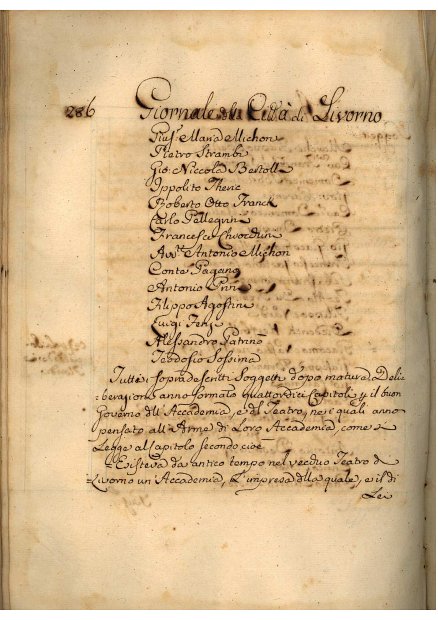 286 Giornale della Città di Livorno
Gius.e Maria Michon
Pietro Strambi
Gio: Niccola Bertolli
Ippolito Theric
Roberto Otto Franck
Carlo Pellegrini
Francesco
Avv.to Antonio Michon
Conte Pagano
Antonio
Filippo Agostini
Luigi
Alessandro Patrino
Teodosio Sossima
Tutti i sopradescritti Soggetti dopo matura Deli=
=berazione anno formato quattordici Capitoli p il buon
Governo dell'Accademia, e del Teatro, nei quali anno
pensato all'Arme di Loro Accademia, come si
Legge al Capitolo secondo cioè
Esisteva da antico tempo nel vecchio Teatro di
Livorno un'Accademia, L'impresa della quale, e il di
Lei